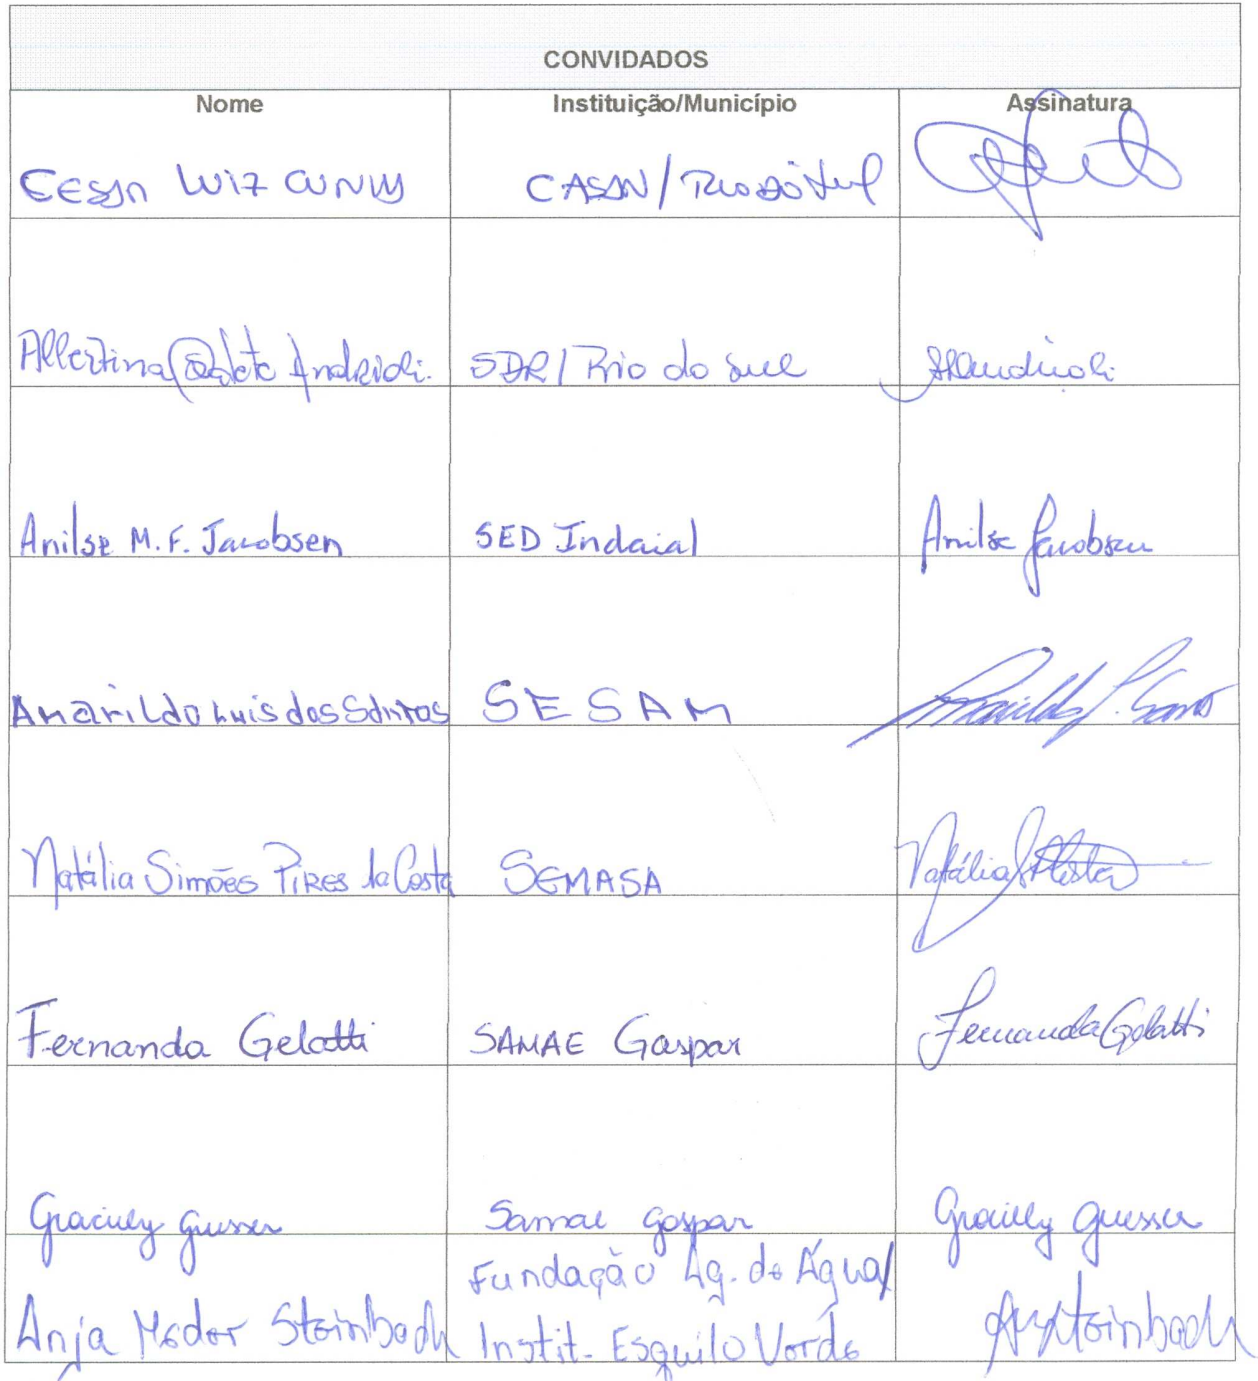 CONVIDADOS
Nome Instituição/Município Assinatura
CESAR LUIZ CUNHA CASAN/ RIO DO SUL
Albertina Andreoli. SDR/ Rio do Sul
Anilse M.F. Jacobsen SED Indaial Anilse Jacobsen
Amarildo Luis dos Santos SESAM
Natália Simões Pires da Costa SEMASA Natália
Fernanda Gelatti SAMAE Gaspar Fernanda Gelatti
Gracielly Guesser Samae Gaspar Gracielly Guesser
Fundação Ág. de Água/
Anja Meder Steinbach Instit. Esquilo Verde Steinbach